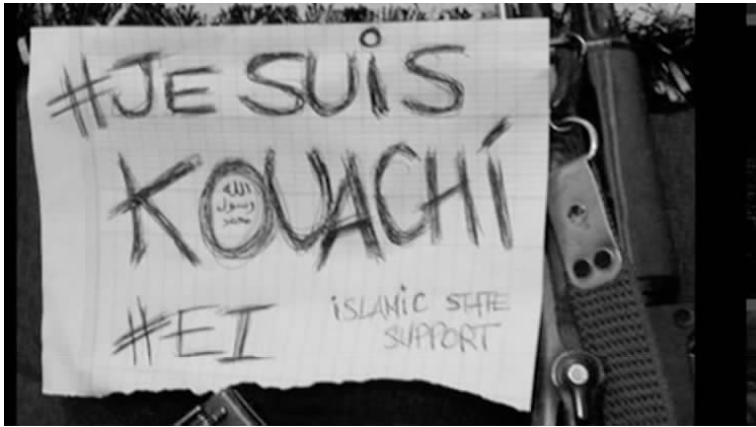 #JE SUiS
KOUACHi
الله
رسول
محمد
#EI
iSLAMIC STATE
SUPPORT